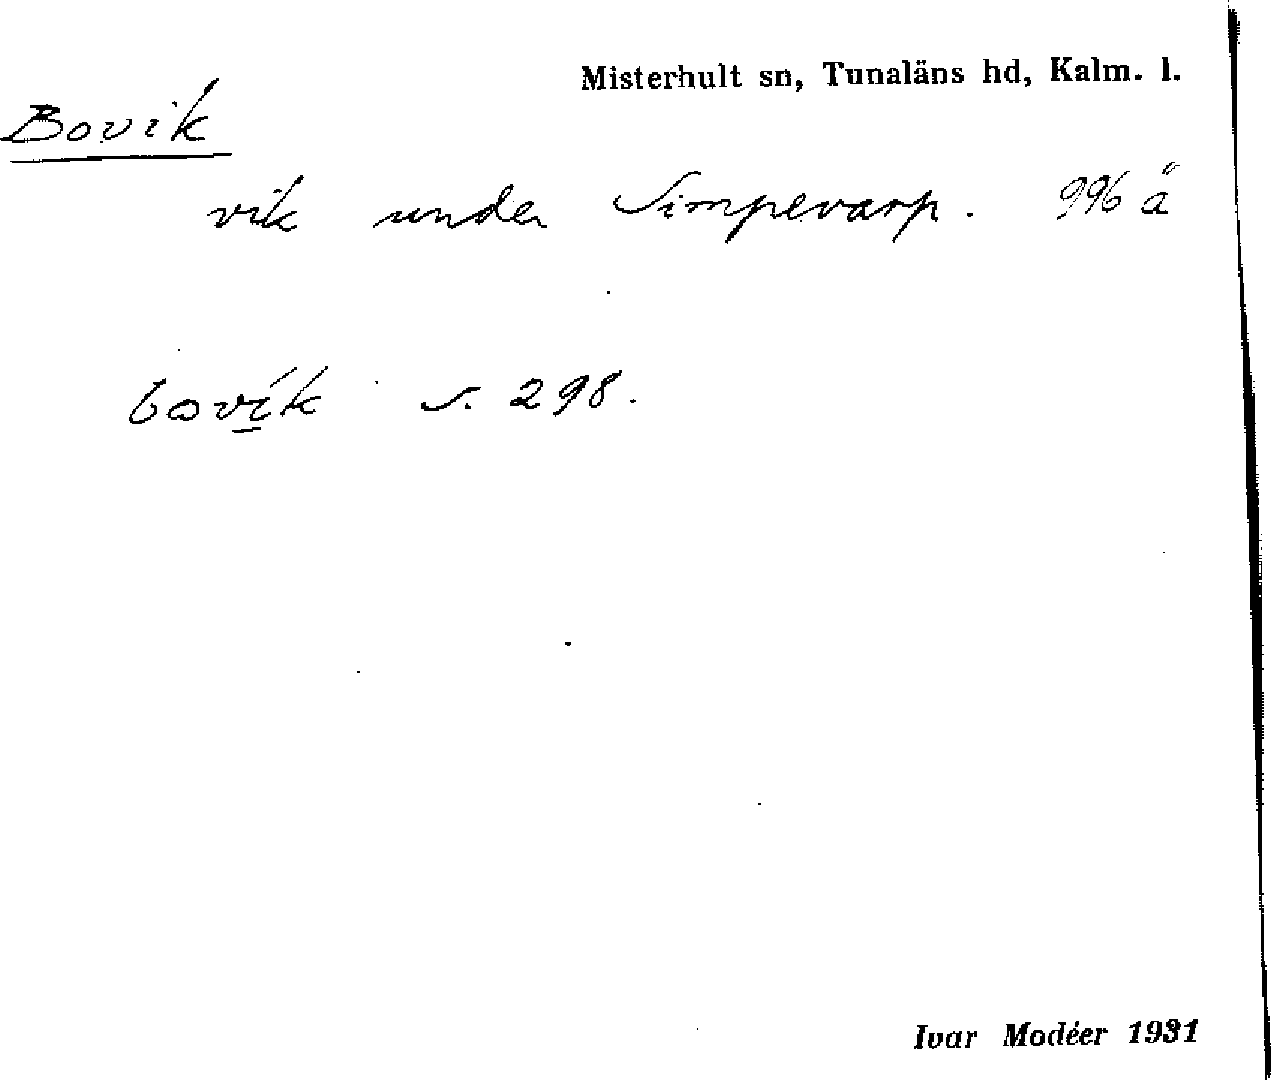 Misterhult sn, Tunaläns hd, Kalm. l.
Bovik
vik under Simpevarp. 996 å
bovik s. 298.
Ivar Modéer 1931